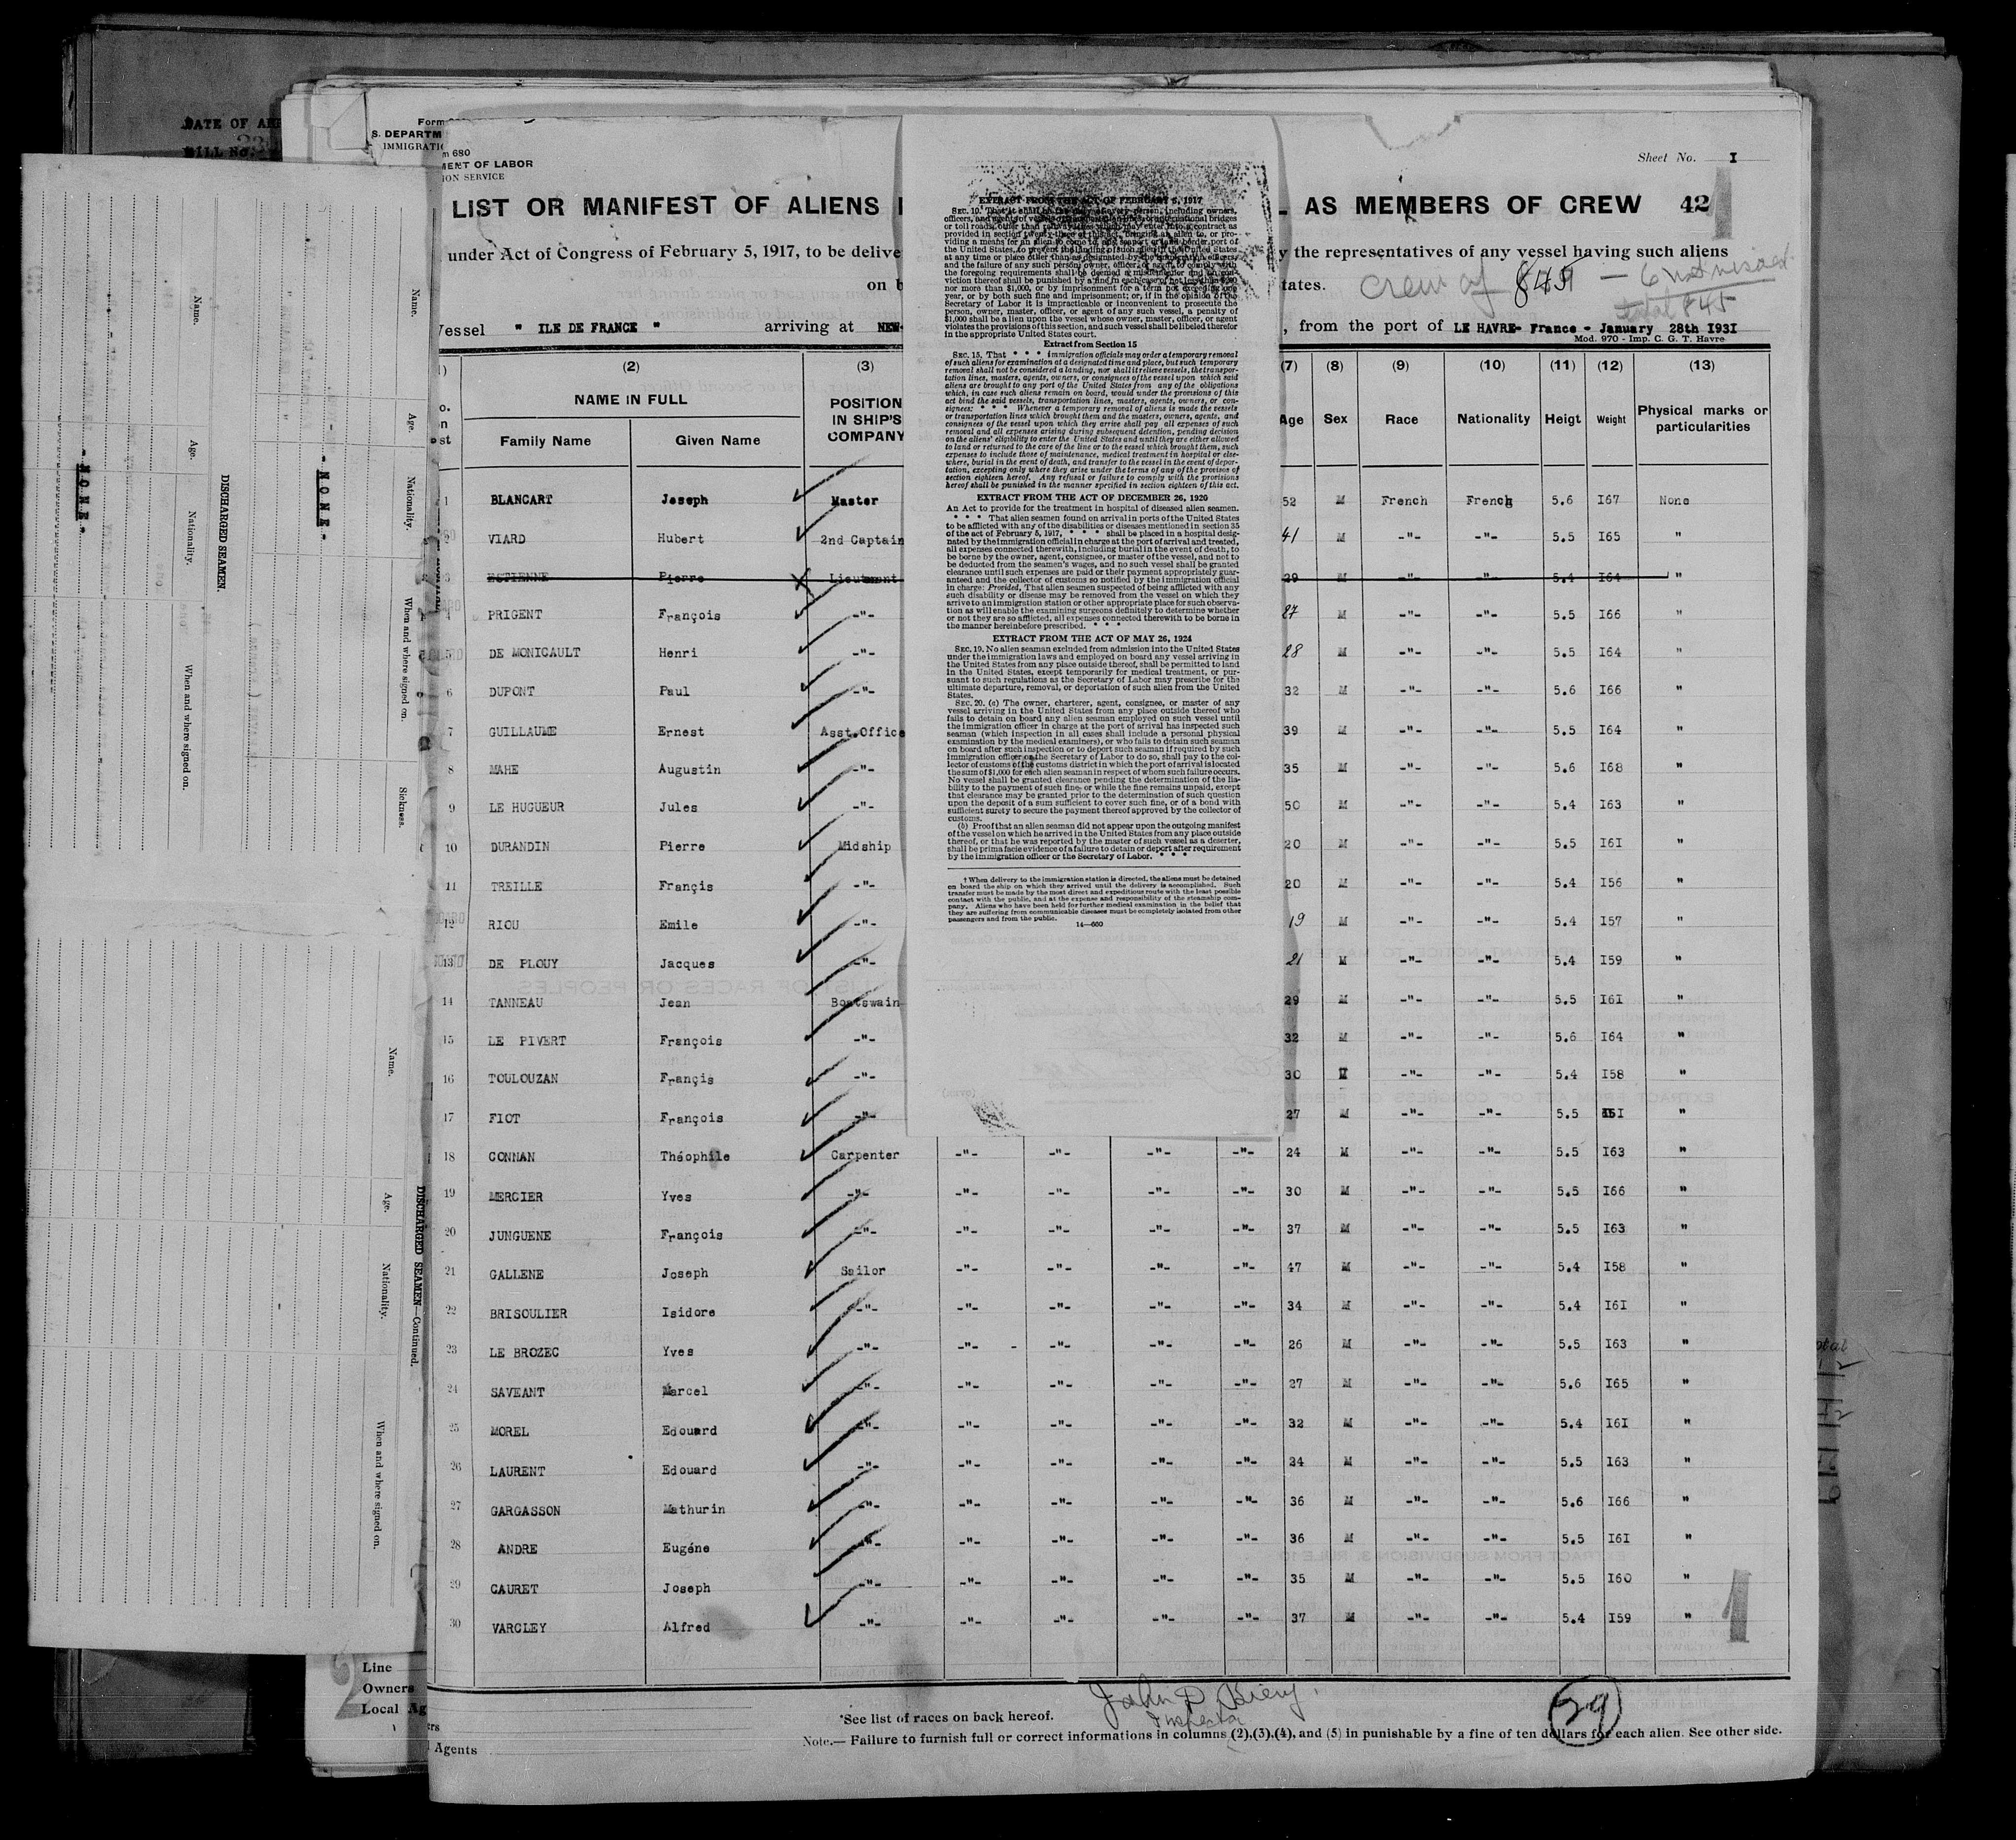 DATE OF
BILL No.
Form
S. DEPARTM
IMMIGRATI
m 680
MENT OF LABOR
ION SERVICE
Sheet No. I
LIST OR MANIFEST OF ALIENS
AS MEMBERS OF CREW 42
under Act of Congress of February 5, 1917, to be delive
y the representatives of any vessel having such aliens
on b
tates.
Crew of 849 - 6 not visaed
total 845
Vessel " ILE DE FRANCE " arriving at NEW-
, from the port of LE HAVRE- France - January 28th I93I
Mod. 970 - Imp. C. G. T. Havre
(2) (3) (7) (8) (9) (10) (11) (12) (13)
NAME IN FULL
Family Name Given Name
POSITION
IN SHIP'S
COMPANY
Age Sex Race Nationality Heigt Weight
Physical marks or
particularities
1 BLANCART Joseph Master 52 M French French 5.6 I67 None
2 VIARD Hubert 2nd Captain 41 M -"- -"- 5.5 I65 "
3 ESTIENNE Pierre Lieutenant 29 M -"- -"- 5.4 I64 "
4 PRIGENT François -"- 27 M -"- -"- 5.5 I66 "
5 DE MONICAULT Henri -"- 28 M -"- -"- 5.5 I64 "
6 DUPONT Paul -"- 32 M -"- -"- 5.6 I66 "
7 GUILLAUME Ernest Asst.Office 39 M -"- -"- 5.5 I64 "
8 MAHE Augustin -"- 35 M -"- -"- 5.6 I68 "
9 LE HUGUEUR Jules -"- 50 M -"- -"- 5.4 I63 "
10 DURANDIN Pierre Midship 20 M -"- -"- 5.5 I6I "
11 TREILLE Françis -"- 20 M -"- -"- 5.4 I56 "
12 RIOU Emile -"- 19 M -"- -"- 5.4 I57 "
13 DE PLOUY Jacques -"- 21 M -"- -"- 5.4 I59 "
14 TANNEAU Jean Boatswain 29 M -"- -"- 5.5 I6I "
15 LE PIVERT François -"- 32 M -"- -"- 5.6 I64 "
16 TOULOUZAN Françis -"- 30 M -"- -"- 5.4 I58 "
17 FIOT François -"- 27 M -"- -"- 5.5 "
18 CONNAN Théophile Carpenter -"- -"- -"- -"- 24 M -"- -"- 5.5 I63 "
19 MERCIER Yves -"- -"- -"- -"- -"- 30 M -"- -"- 5.5 I66 "
20 JUNGUENE François -"- -"- -"- -"- -"- 37 M -"- -"- 5.5 I63 "
21 GALLENE Joseph Sailor -"- -"- -"- -"- 47 M -"- -"- 5.4 I58 "
22 BRISOULIER Isidore -"- -"- -"- -"- -"- 34 M -"- -"- 5.4 I6I "
23 LE BROZEC Yves -"- -"- -"- -"- -"- 26 M -"- -"- 5.5 I63 "
24 SAVEANT Marcel -"- -"- -"- -"- -"- 27 M -"- -"- 5.6 I65 "
25 MOREL Edouard -"- -"- -"- -"- -"- 32 M -"- -"- 5.4 I6I "
26 LAURENT Edouard -"- -"- -"- -"- -"- 24 M -"- -"- 5.5 I63 "
27 GARGASSON Mathurin -"- -"- -"- -"- -"- 36 M -"- -"- 5.6 I66 "
28 ANDRE Eugéne -"- -"- -"- -"- -"- 36 M -"- -"- 5.5 I6I "
29 CAURET Joseph -"- -"- -"- -"- -"- 35 M -"- -"- 5.5 I60 "
30 VARCLEY Alfred -"- -"- -"- -"- -"- 37 M -"- -"- 5.4 I59 "
EXTRACT FROM THE ACT OF FEBRUARY 5, 1917
SEC. 10. That it shall be the duty of every person, including owners,
officers, and agents of vessels or transportation lines, or international bridges
or toll roads, other than railway lines which may enter into a contract as
provided in section twenty-three of this act, bringing an alien to, or pro-
viding a means for an alien to come to, any seaport or land border port of
the United States, to prevent the landing of such alien in the United States
at any time or place other than as designated by the immigration officers,
and the failure of any such person, owner, officer, or agent to comply with
the foregoing requirements shall be deemed a misdemeanor and on con-
viction thereof shall be punished by a fine in each case of not less than $200
nor more than $1,000, or by imprisonment for a term not exceeding one
year, or by both such fine and imprisonment; or, if in the opinion of the
Secretary of Labor it is impracticable or inconvenient to prosecute the
person, owner, master, officer, or agent of any such vessel, a penalty of
$1,000 shall be a lien upon the vessel whose owner, master, officer, or agent
violates the provisions of this section, and such vessel shall be libeled therefor
in the appropriate United States court.
Extract from Section 15
SEC. 15. That * * * immigration officials may order a temporary removal
of such aliens for examination at a designated time and place, but such temporary
removal shall not be considered a landing, nor shall it relieve vessels, the transpor-
tation lines, masters, agents, owners, or consignees of the vessel upon which said
aliens are brought to any port of the United States from any of the obligations
which, in case such aliens remain on board, would under the provisions of this
act bind the said vessels, transportation lines, masters, agents, owners, or con-
signees: * * * Whenever a temporary removal of aliens is made the vessels
or transportation lines which brought them and the masters, owners, agents, and
consignees of the vessel upon which they arrive shall pay all expenses of such
removal and all expenses arising during subsequent detention, pending decision
on the aliens' eligibility to enter the United States and until they are either allowed
to land or returned to the care of the line or to the vessel which brought them, such
expenses to include those of maintenance, medical treatment in hospital or else-
where, burial in the event of death, and transfer to the vessel in the event of depor-
tation, excepting only where they arise under the terms of any of the provisos of
section eighteen hereof. Any refusal or failure to comply with the provisions
hereof shall be punished in the manner specified in section eighteen of this act.
EXTRACT FROM THE ACT OF DECEMBER 26, 1920
An Act to provide for the treatment in hospital of diseased alien seamen.
* * * That alien seamen found on arrival in ports of the United States
to be afflicted with any of the disabilities or diseases mentioned in section 35
of the act of February 5, 1917, * * * shall be placed in a hospital desig-
nated by the immigration official in charge at the port of arrival and treated,
all expenses connected therewith, including burial in the event of death, to
be borne by the owner, agent, consignee, or master of the vessel, and not to
be deducted from the seamen's wages, and no such vessel shall be granted
clearance until such expenses are paid or their payment appropriately guar-
anteed and the collector of customs so notified by the immigration official
in charge: Provided, That alien seamen suspected of being afflicted with any
such disability or disease may be removed from the vessel on which they
arrive to an immigration station or other appropriate place for such observa-
tion as will enable the examining surgeons definitely to determine whether
or not they are so afflicted, all expenses connected therewith to be borne in
the manner hereinbefore prescribed. * * *
EXTRACT FROM THE ACT OF MAY 26, 1924
SEC. 19. No alien seaman excluded from admission into the United States
under the immigration laws and employed on board any vessel arriving in
the United States from any place outside thereof, shall be permitted to land
in the United States, except temporarily for medical treatment, or pur-
suant to such regulations as the Secretary of Labor may prescribe for the
ultimate departure, removal, or deportation of such alien from the United
States.
SEC. 20. (a) The owner, charterer, agent, consignee, or master of any
vessel arriving in the United States from any place outside thereof who
fails to detain on board any alien seaman employed on such vessel until
the immigration officer in charge at the port of arrival has inspected such
seaman (which inspection in all cases shall include a personal physical
examination by the medical examiners), or who fails to detain such seaman
on board after such inspection or to deport such seaman if required by such
immigration officer or the Secretary of Labor to do so, shall pay to the col-
lector of customs of the customs district in which the port of arrival is located
the sum of $1,000 for each alien seaman in respect of whom such failure occurs.
No vessel shall be granted clearance pending the determination of the lia-
bility to the payment of such fine, or while the fine remains unpaid, except
that clearance may be granted prior to the determination of such question
upon the deposit of a sum sufficient to cover such fine, or of a bond with
sufficient surety to secure the payment thereof approved by the collector of
customs.
(b) Proof that an alien seaman did not appear upon the outgoing manifest
of the vessel on which he arrived in the United States from any place outside
thereof, or that he was reported by the master of such vessel as a deserter,
shall be prima facie evidence of a failure to detain or deport after requirement
by the immigration officer or the Secretary of Labor. * * *
† When delivery to the immigration station is directed, the aliens must be detained
on board the ship on which they arrived until the delivery is accomplished. Such
transfer must be made by the most direct and expeditious route with the least possible
contact with the public, and at the expense and responsibility of the steamship com-
pany. Aliens who have been held for further medical examination in the belief that
they are suffering from communicable diseases must be completely isolated from other
passengers and from the public.
14—680
Name. Age. Nationality. When and where signed on. Sickness.
" N O N E "
DISCHARGED SEAMEN.
Name. Age. Nationality. When and where signed on.
" N O N E "
DISCHARGED SEAMEN—Continued.
Name. Age. Nationality. When and where signed on.
Line
Owners
Local Ag
Agents
John D. Biery.
Inspector
29
*See list of races on back hereof.
Note.— Failure to furnish full or correct informations in columns (2),(3),(4), and (5) in punishable by a fine of ten dollars for each alien. See other side.